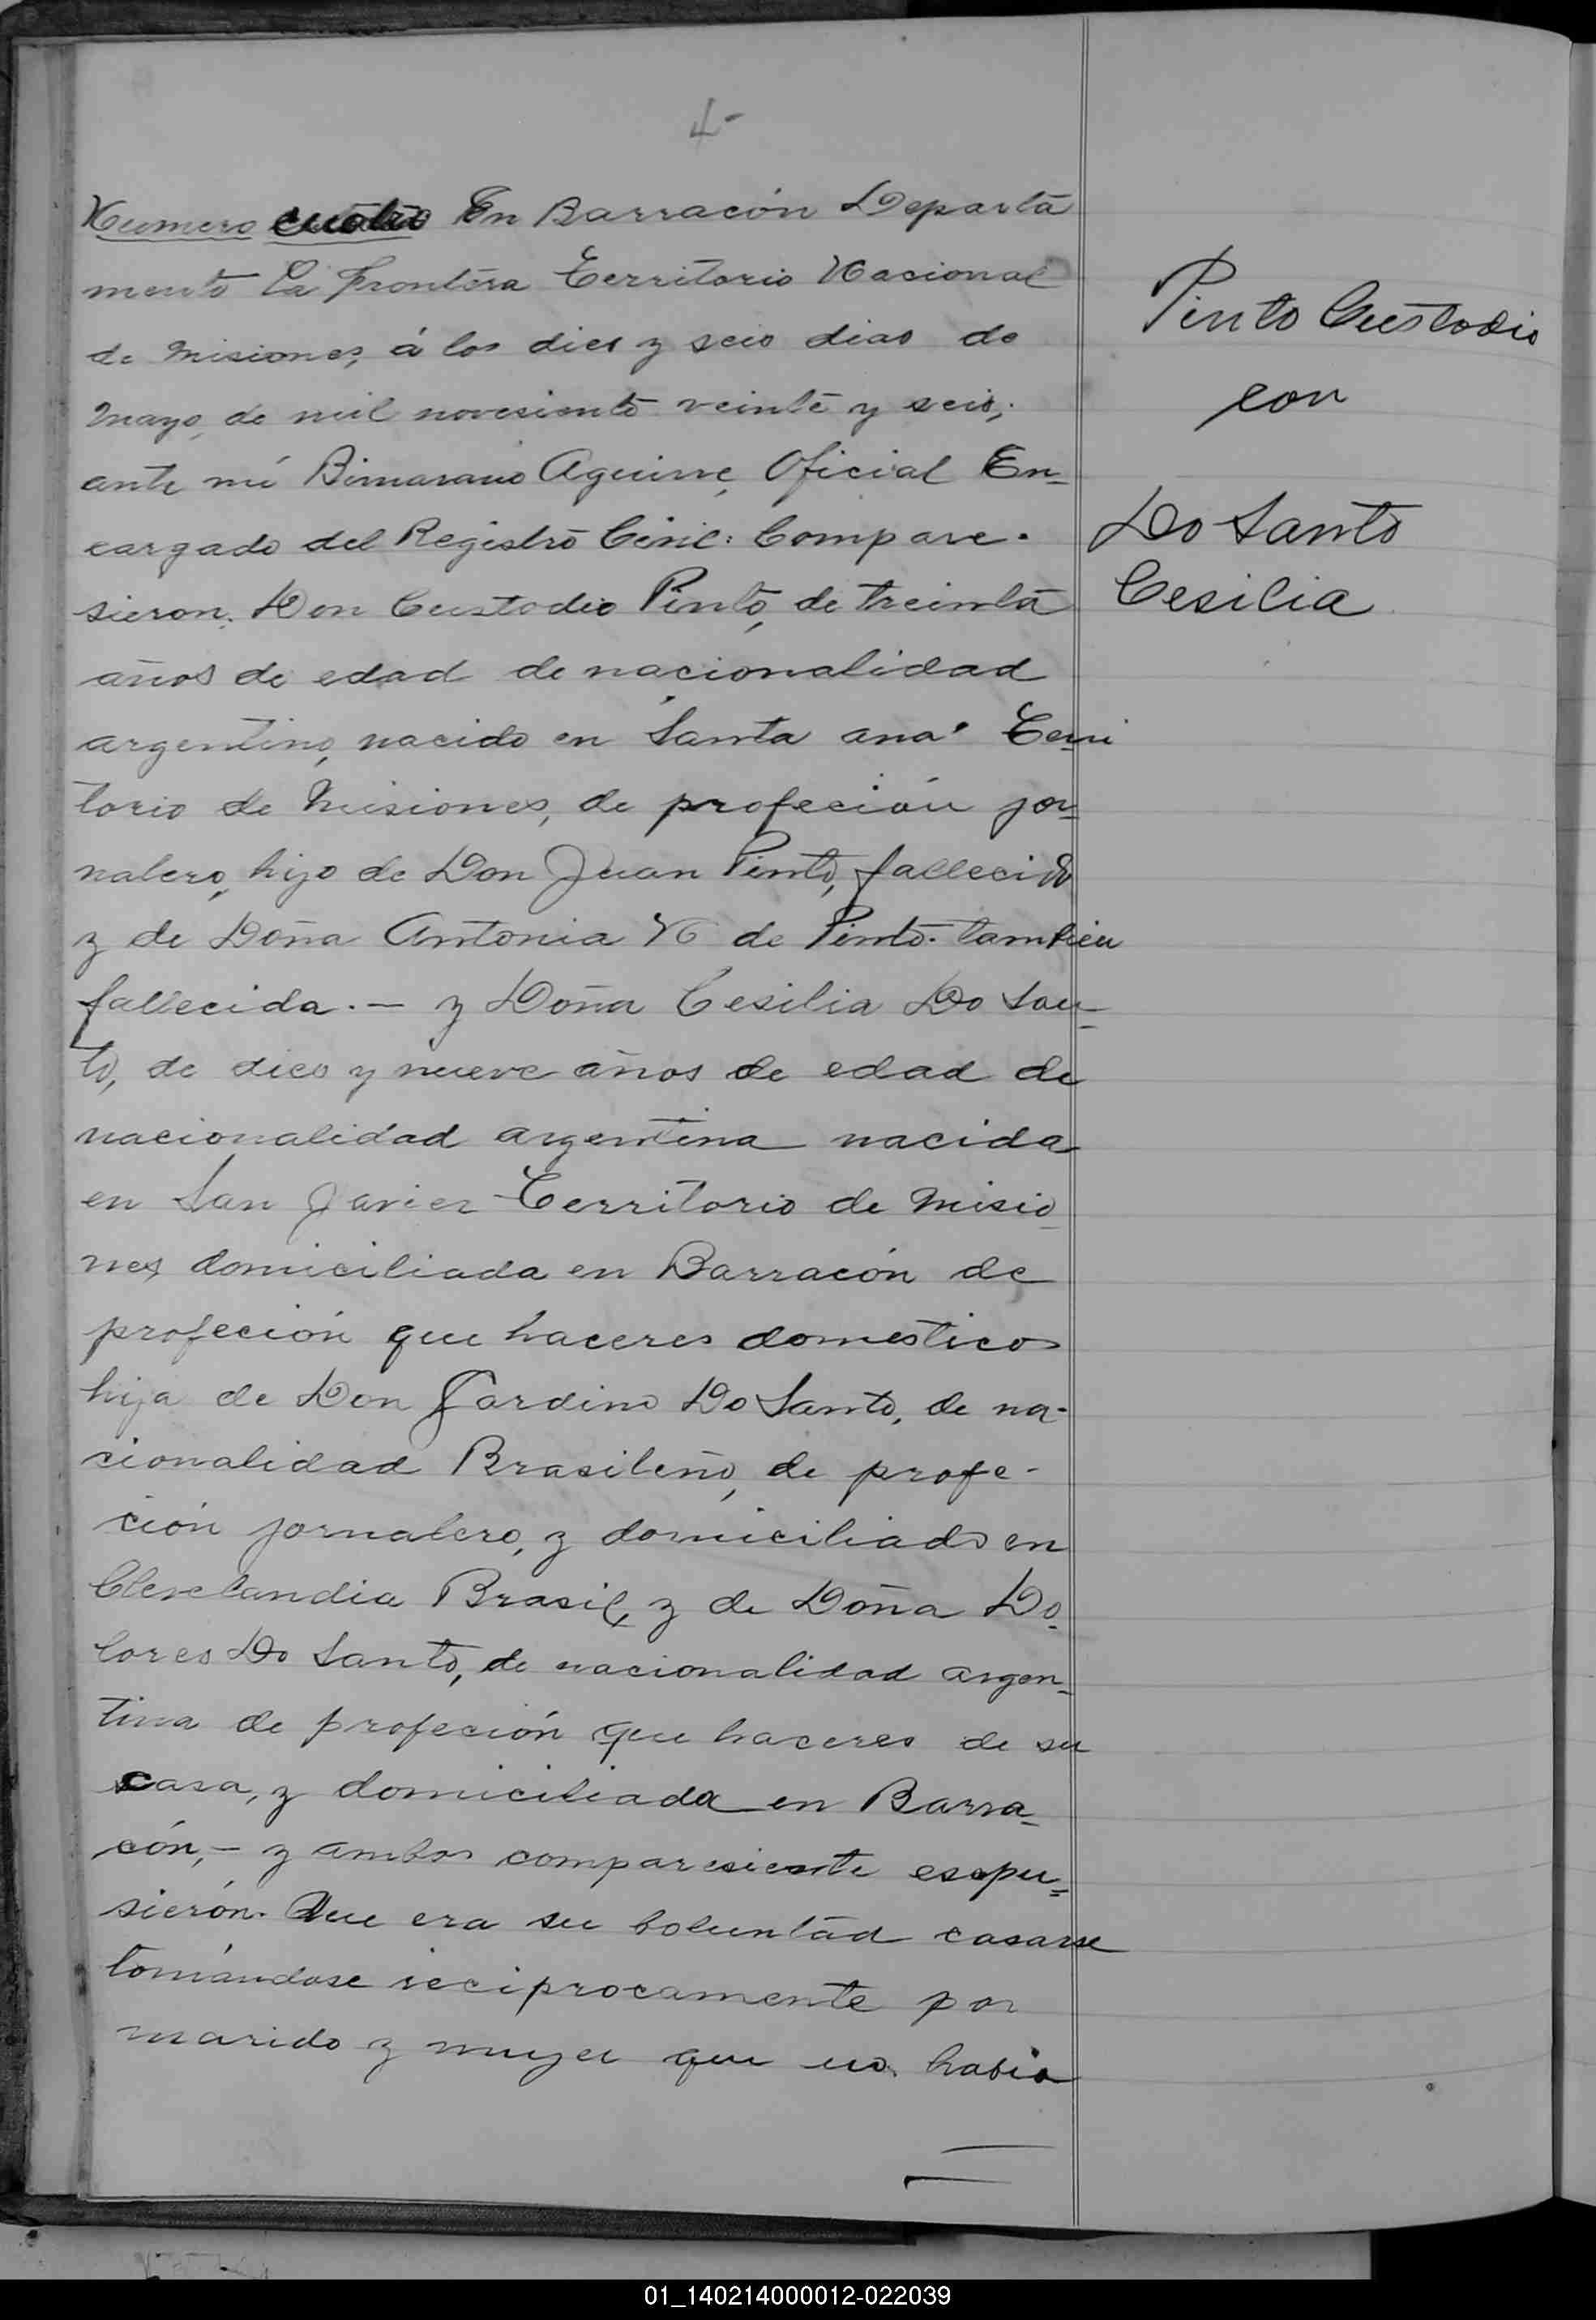 4-
Numero cuatro En Barracón Departa
mento La Frontera Territorio Nacional
de Misiones, á los dies y seis dias de
Mayo, de mil novesiento veinte y seis,
ante mí Aguirre, Oficial En=
cargado del Registro Civil: Compare-
sieron. Don Custodio Pinto, de treinta
años de edad de nacionalidad
argentino, nacido en Santa ana. Terri
torio de Misiones, de profeción jor=
nalero, hijo de Don Juan Pinto, fallecido
y de Doña Antonia N de Pinto. tambien
fallecida. - y Doña Cesilia Do San=
to, de dies y nueve años de edad de
nacionalidad argentina nacida
en San Javier Territorio de Misio
nes, domiciliada en Barracón de
profeción que haceres domesticos
hija de Don Jardino Do Santo, de na-
cionalidad Brasileño, de profe-
ción jornalero, y domiciliado en
Clevelandia Brasil, y de Doña Do
lores Do Santo, de nacionalidad argen=
tina de profeción que haceres de su
casa, y domiciliada en Barra=
cón,- y ambos comparesiente esspu=
sierón. Que era su boluntad casarse
tomándose reciprocamente por
marido y mujer que no habia
Pinto Custodio
con
Do Santo
Cesilia
01_140214000012-022039